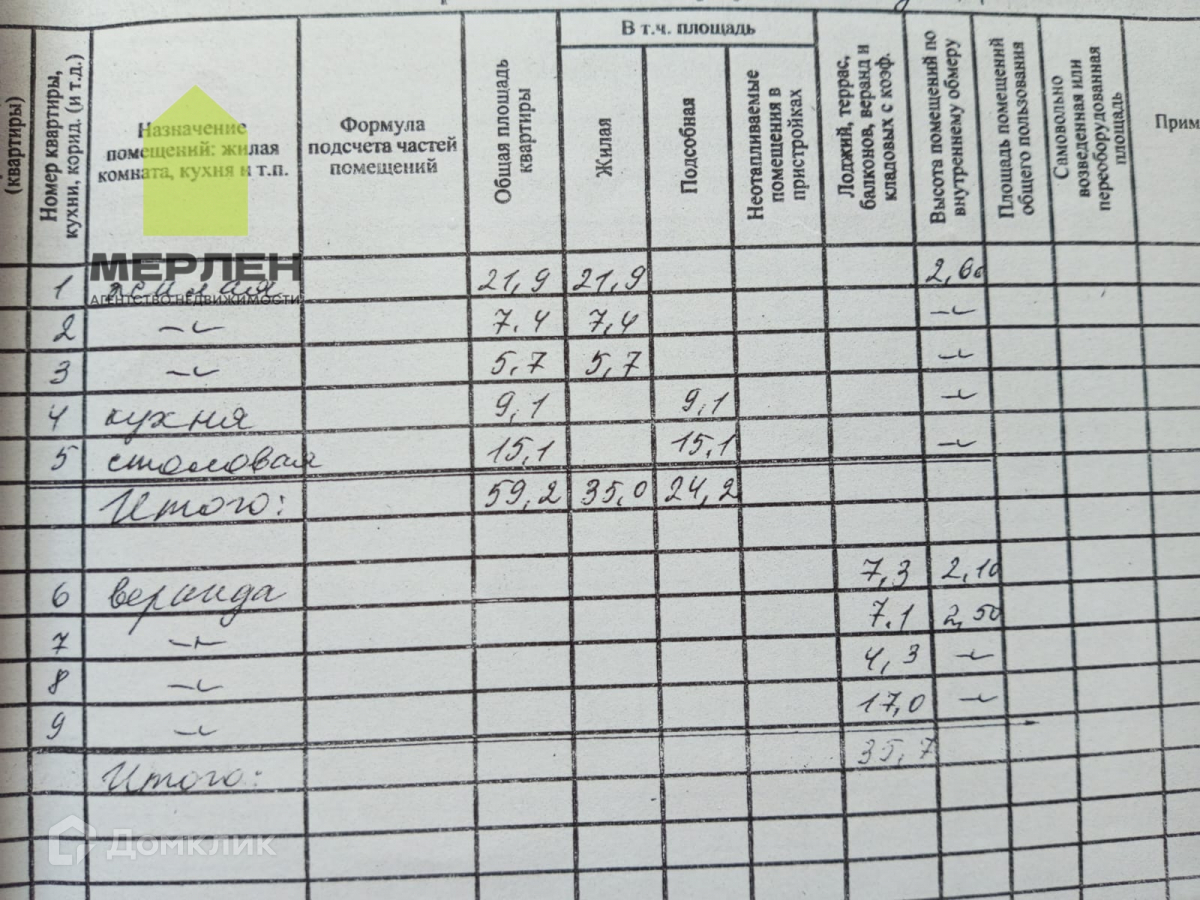 (квартиры)
Номер квартиры,
кухни, корид. (и т.д.)
Назначение
помещений: жилая
комната, кухня и т.п.
Формула
подсчета частей
помещений
Общая площадь
квартиры
В т.ч. площадь
Жилая
Подсобная
Неотапливаемые
помещения в
пристройках
Лоджий, террас,
балконов, веранд и
кладовых с коэф.
Высота помещений по
внутреннему обмеру
Площадь помещений
общего пользования
Самовольно
возведенная или
переоборудованная
площадь
Прим
МЕРЛЕН
АГЕНТСТВО НЕДВИЖИМОСТИ
1 жилая 21,9 21,9 2,60
2 -"- 7.4 7,4 -"-
3 -"- 5.7 5,7 -"-
4 кухня 9,1 9,1 -"-
5 столовая 15,1 15,1 -"-
Итого: 59,2 35,0 24,2
6 веранда 7,3 2,10
7 -"- 7.1 2,50
8 -"- 4,3 -"-
9 -"- 17,0 -"-
Итого: 35,7
Домклик